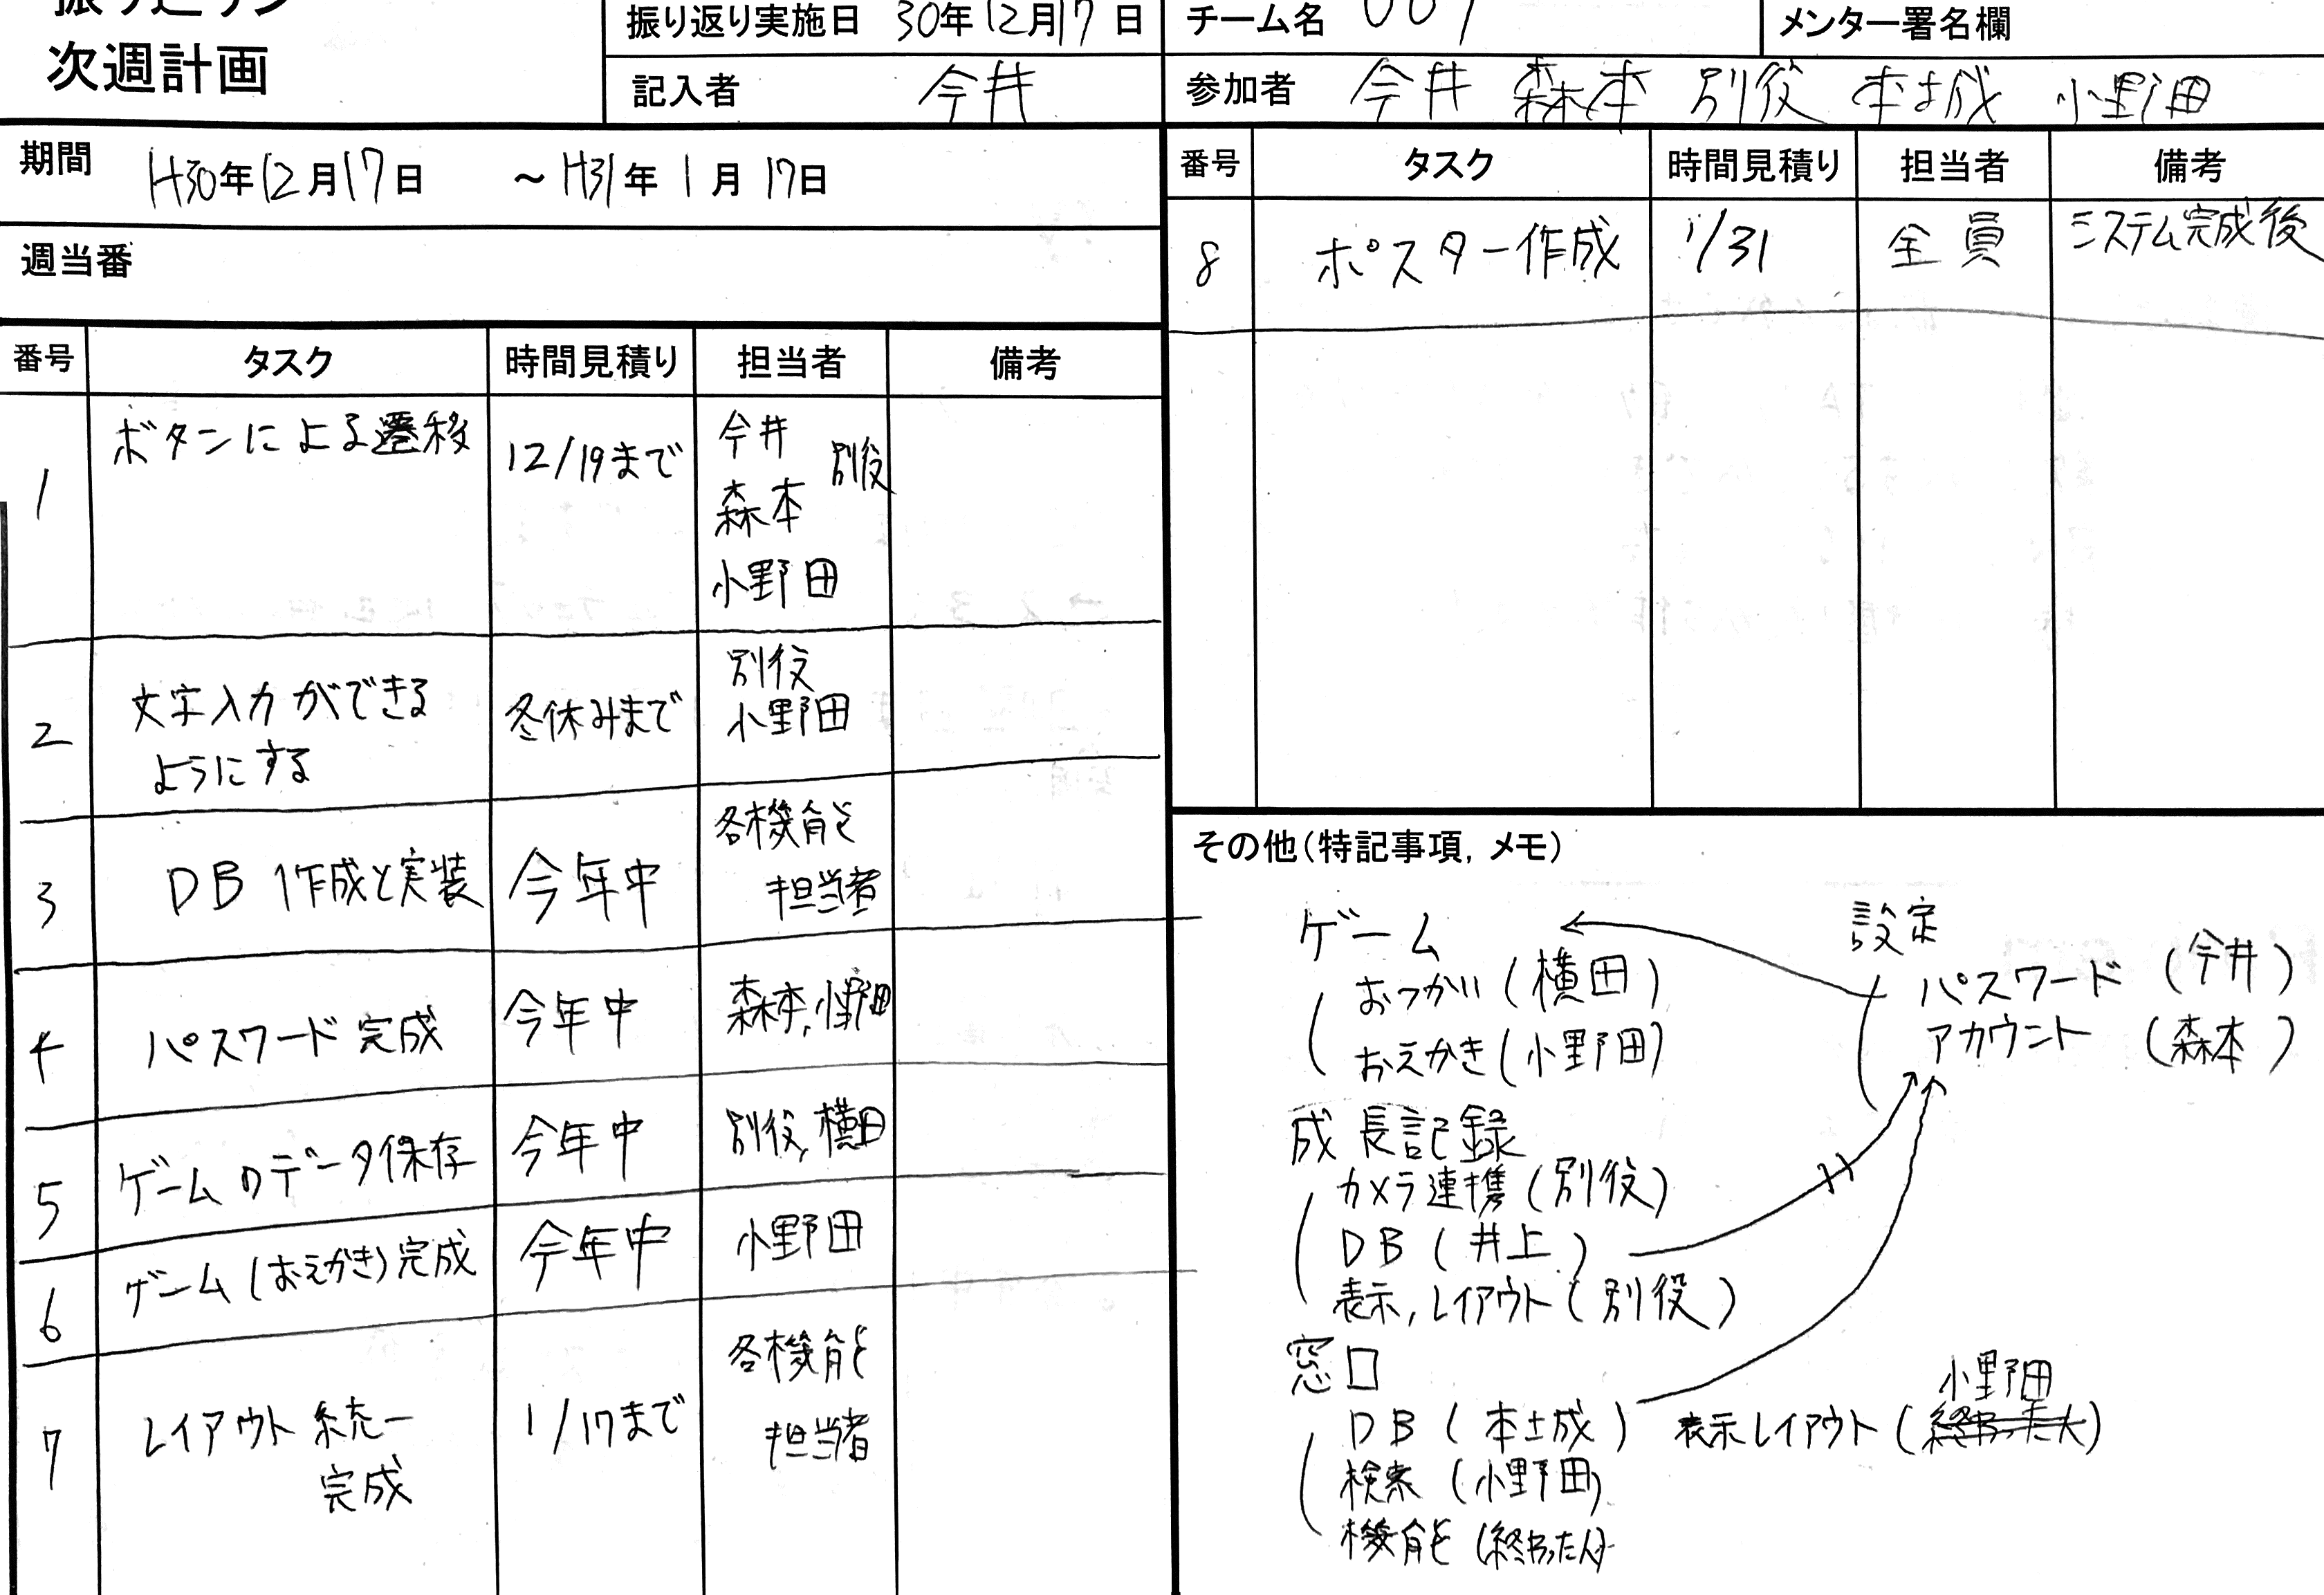 次週計画
振り返り実施日 30年12月17日
チーム名 007
メンター署名欄
記入者 今井
参加者 今井 森本 別役 本土成 小野田
期間 H30年12月17日 ～H31年1月17日
週当番
番号 タスク 時間見積り 担当者 備考
1 ボタンによる遷移 12/19まで 今井 別役
森本
小野田
2 文字入力ができる 冬休みまで 別役
ようにする 小野田
3 DB作成と実装 今年中 各機能を
担当者
4 パスワード完成 今年中 森本,小野田
5 ゲームのデータ保存 今年中 別役,横田
6 ゲーム(おえかき)完成 今年中 小野田
7 レイアウト統一 1/17まで 各機能を
完成 担当者
番号 タスク 時間見積り 担当者 備考
8 ポスター作成 1/31 全員 システム完成後
その他(特記事項, メモ)
ゲーム
おつかい(横田)
おえかき(小野田)
設定
パスワード (今井)
アカウント (森本)
成長記録
カメラ連携(別役)
DB(井上)
表示,レイアウト(別役)
窓口
小野田
DB(本土成) 表示レイアウト(終わった人)
検索(小野田)
機能を(終わった人)